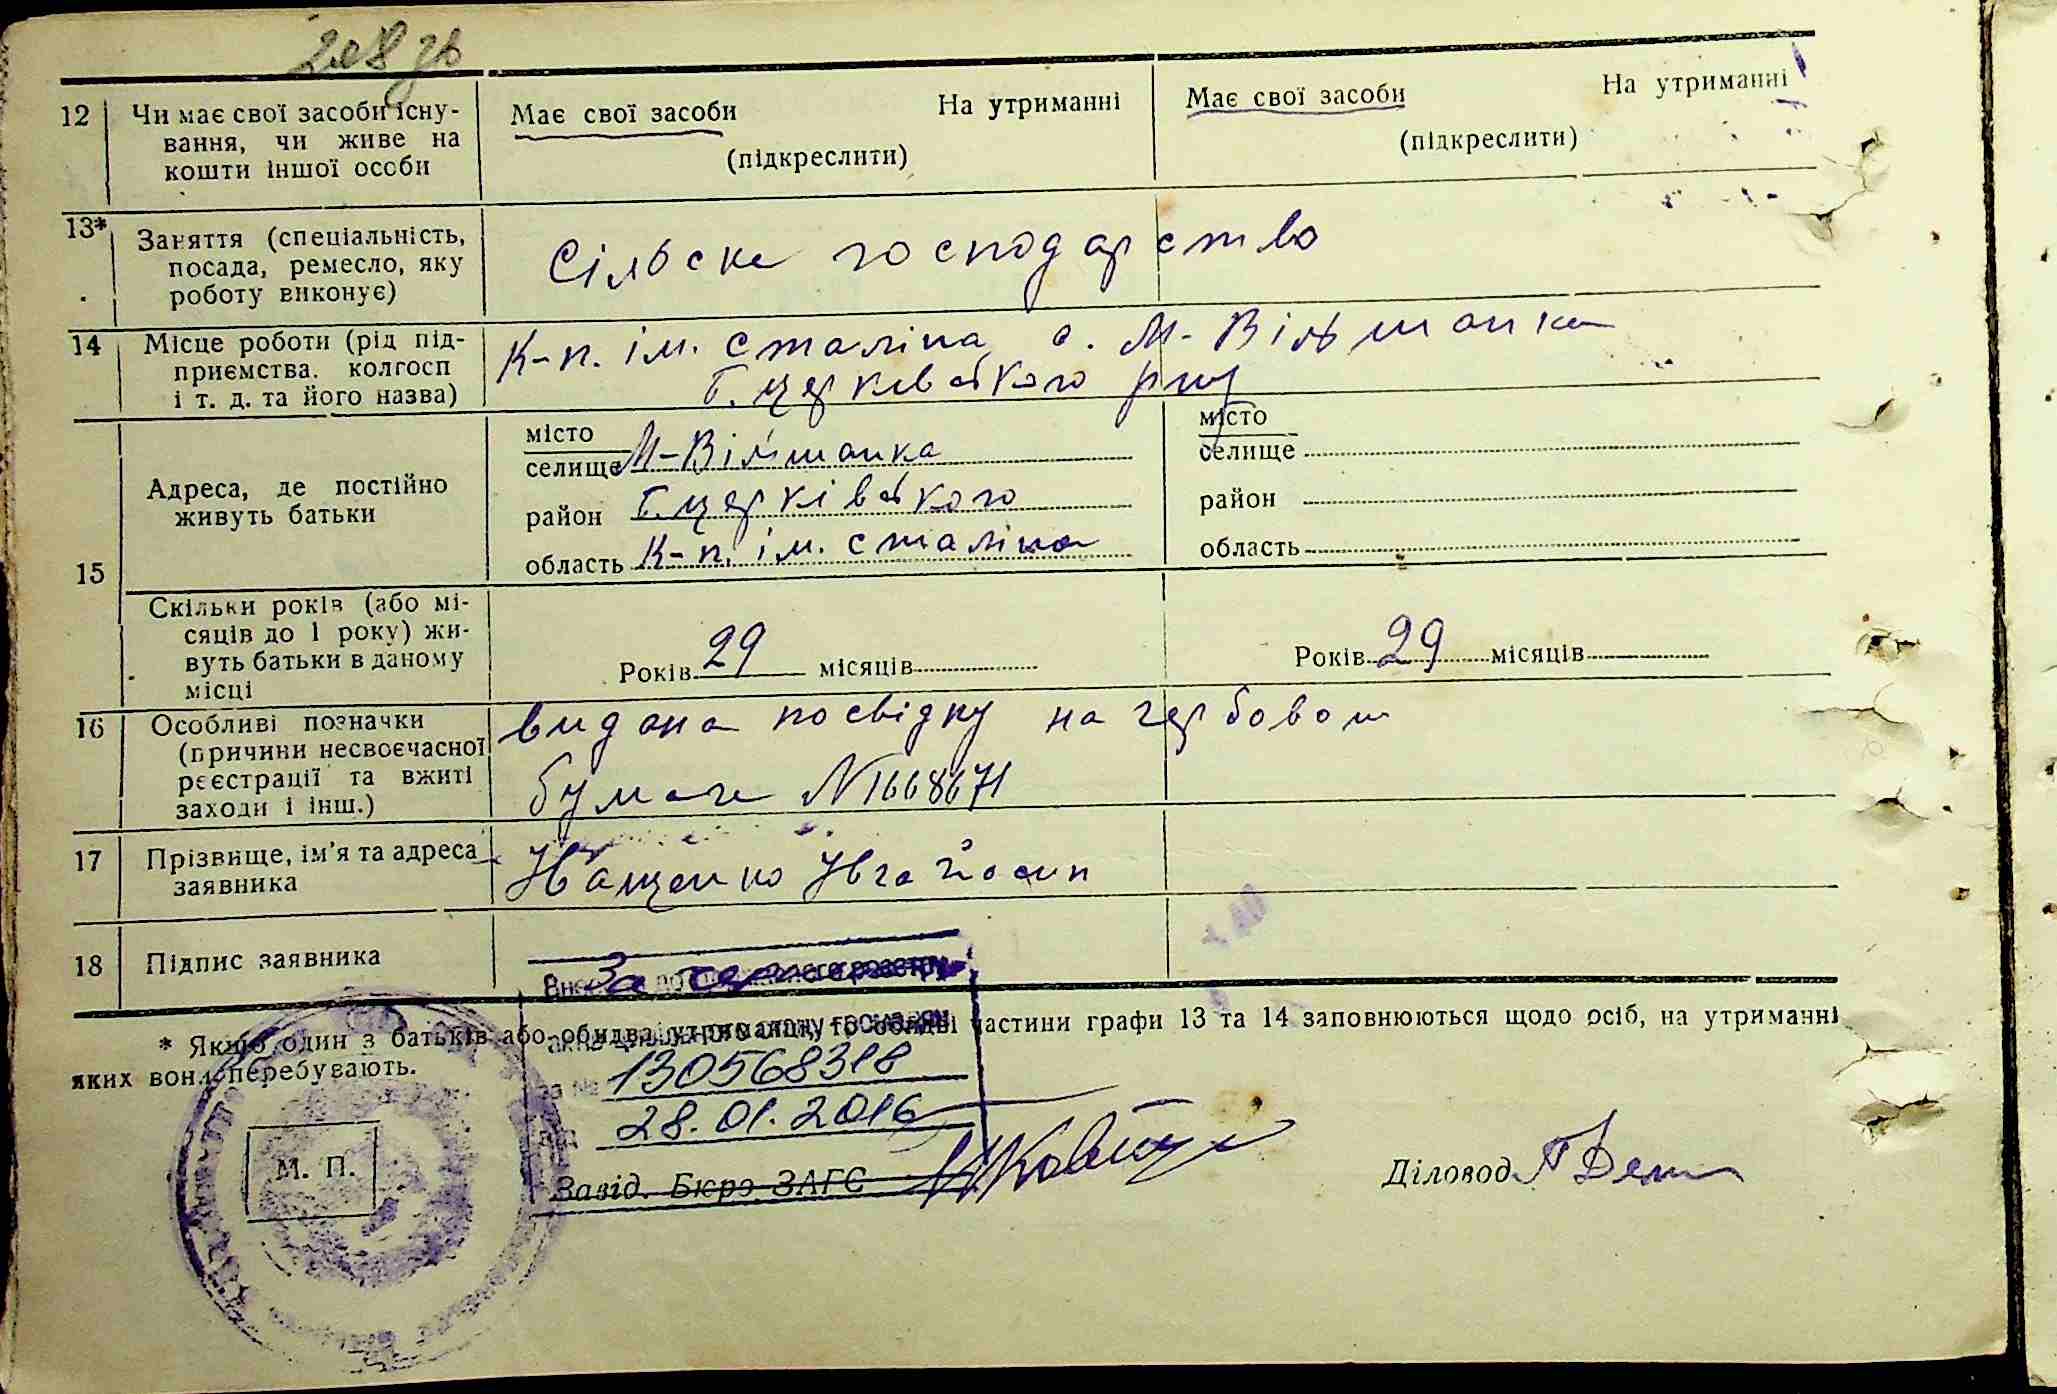 208 зв
12 Чи має свої засоби існу-
вання, чи живе на
кошти іншої особи
Має свої засоби На утриманні
(підкреслити)
Має свої засоби На утриманні
(підкреслити)
13* Заняття (спеціальність,
посада, ремесло, яку
роботу виконує)
Сільске господарство
14 Місце роботи (рід під-
приємства. колгосп
і т. д. та його назва)
К-п. ім. сталіна с. М-Вільшанка
Б. церківського
15 Адреса, де постійно
живуть батьки
місто
селище М-Вільшанка
район Б. церківського
область К-п. ім. сталіна
місто
селище
район
область
Скільки років (або мі-
сяців до 1 року) жи-
вуть батьки в даному
місці
Років 29 місяців
Років 29 місяців
16 Особливі позначки
(причини несвоєчасної
реєстрації та вжиті
заходи і інш.)
видана посвідку на гербовом
бумаге N1668671
17 Прізвище, ім'я та адреса
заявника
Іващенко
18 Підпис заявника
* Якщо один з батьків або обидва утриманці, то обидві частини графи 13 та 14 заповнюються щодо осіб, на утриманні
яких вони перебувають.
за № 130568318
28.01.2016
М. П.
Завід. Бюро ЗАГС
Діловод